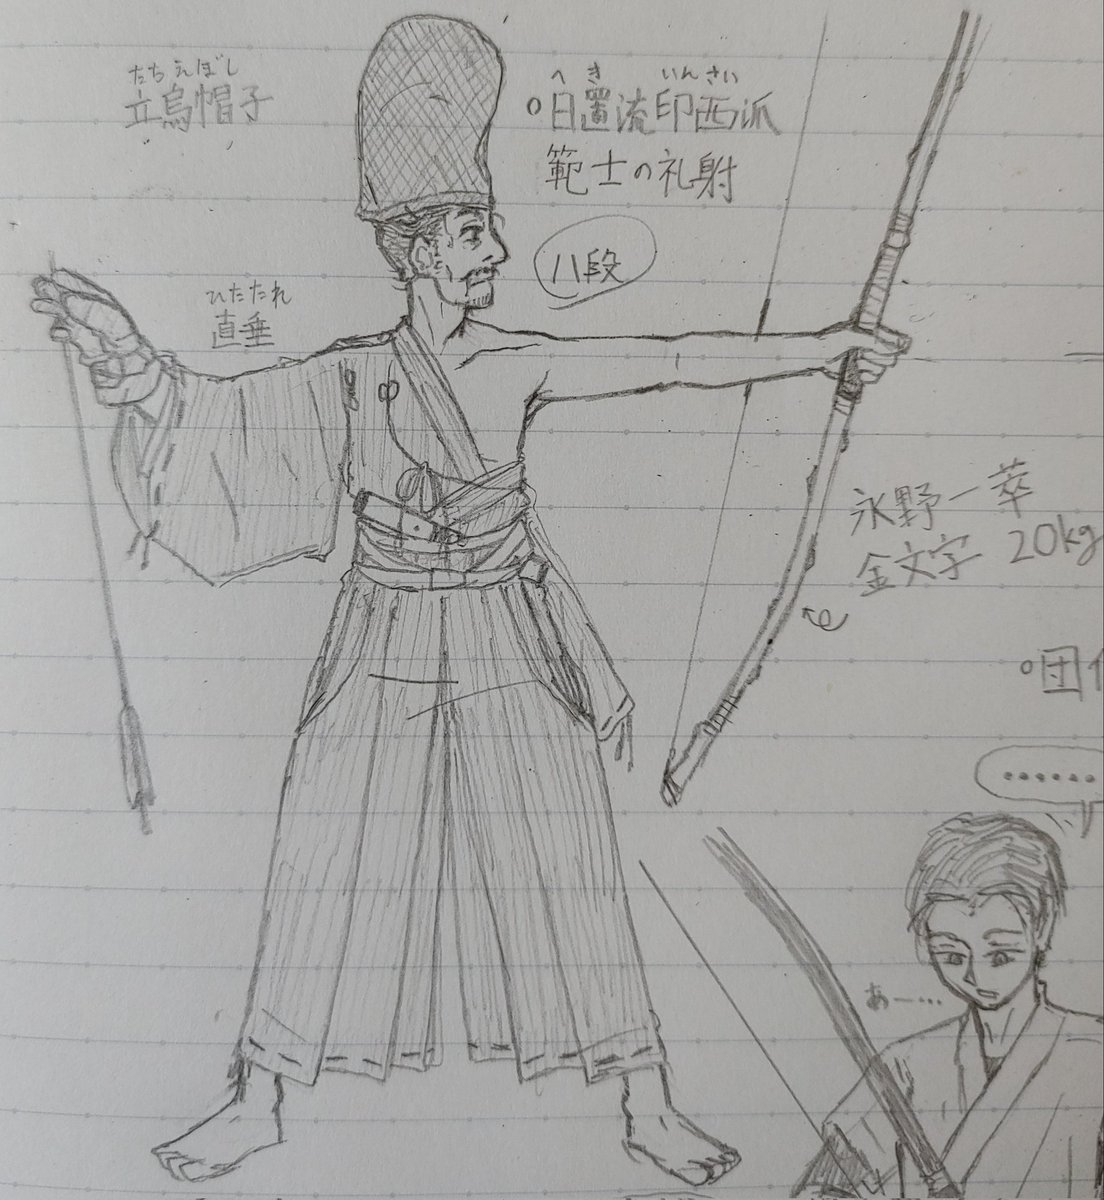 たちえぼし
立烏帽子
へきいんさい
○日置流印西派
範士の礼射
八段
ひたたれ
直垂
永野一萃
金文字 20kg
○団体
……
あー…